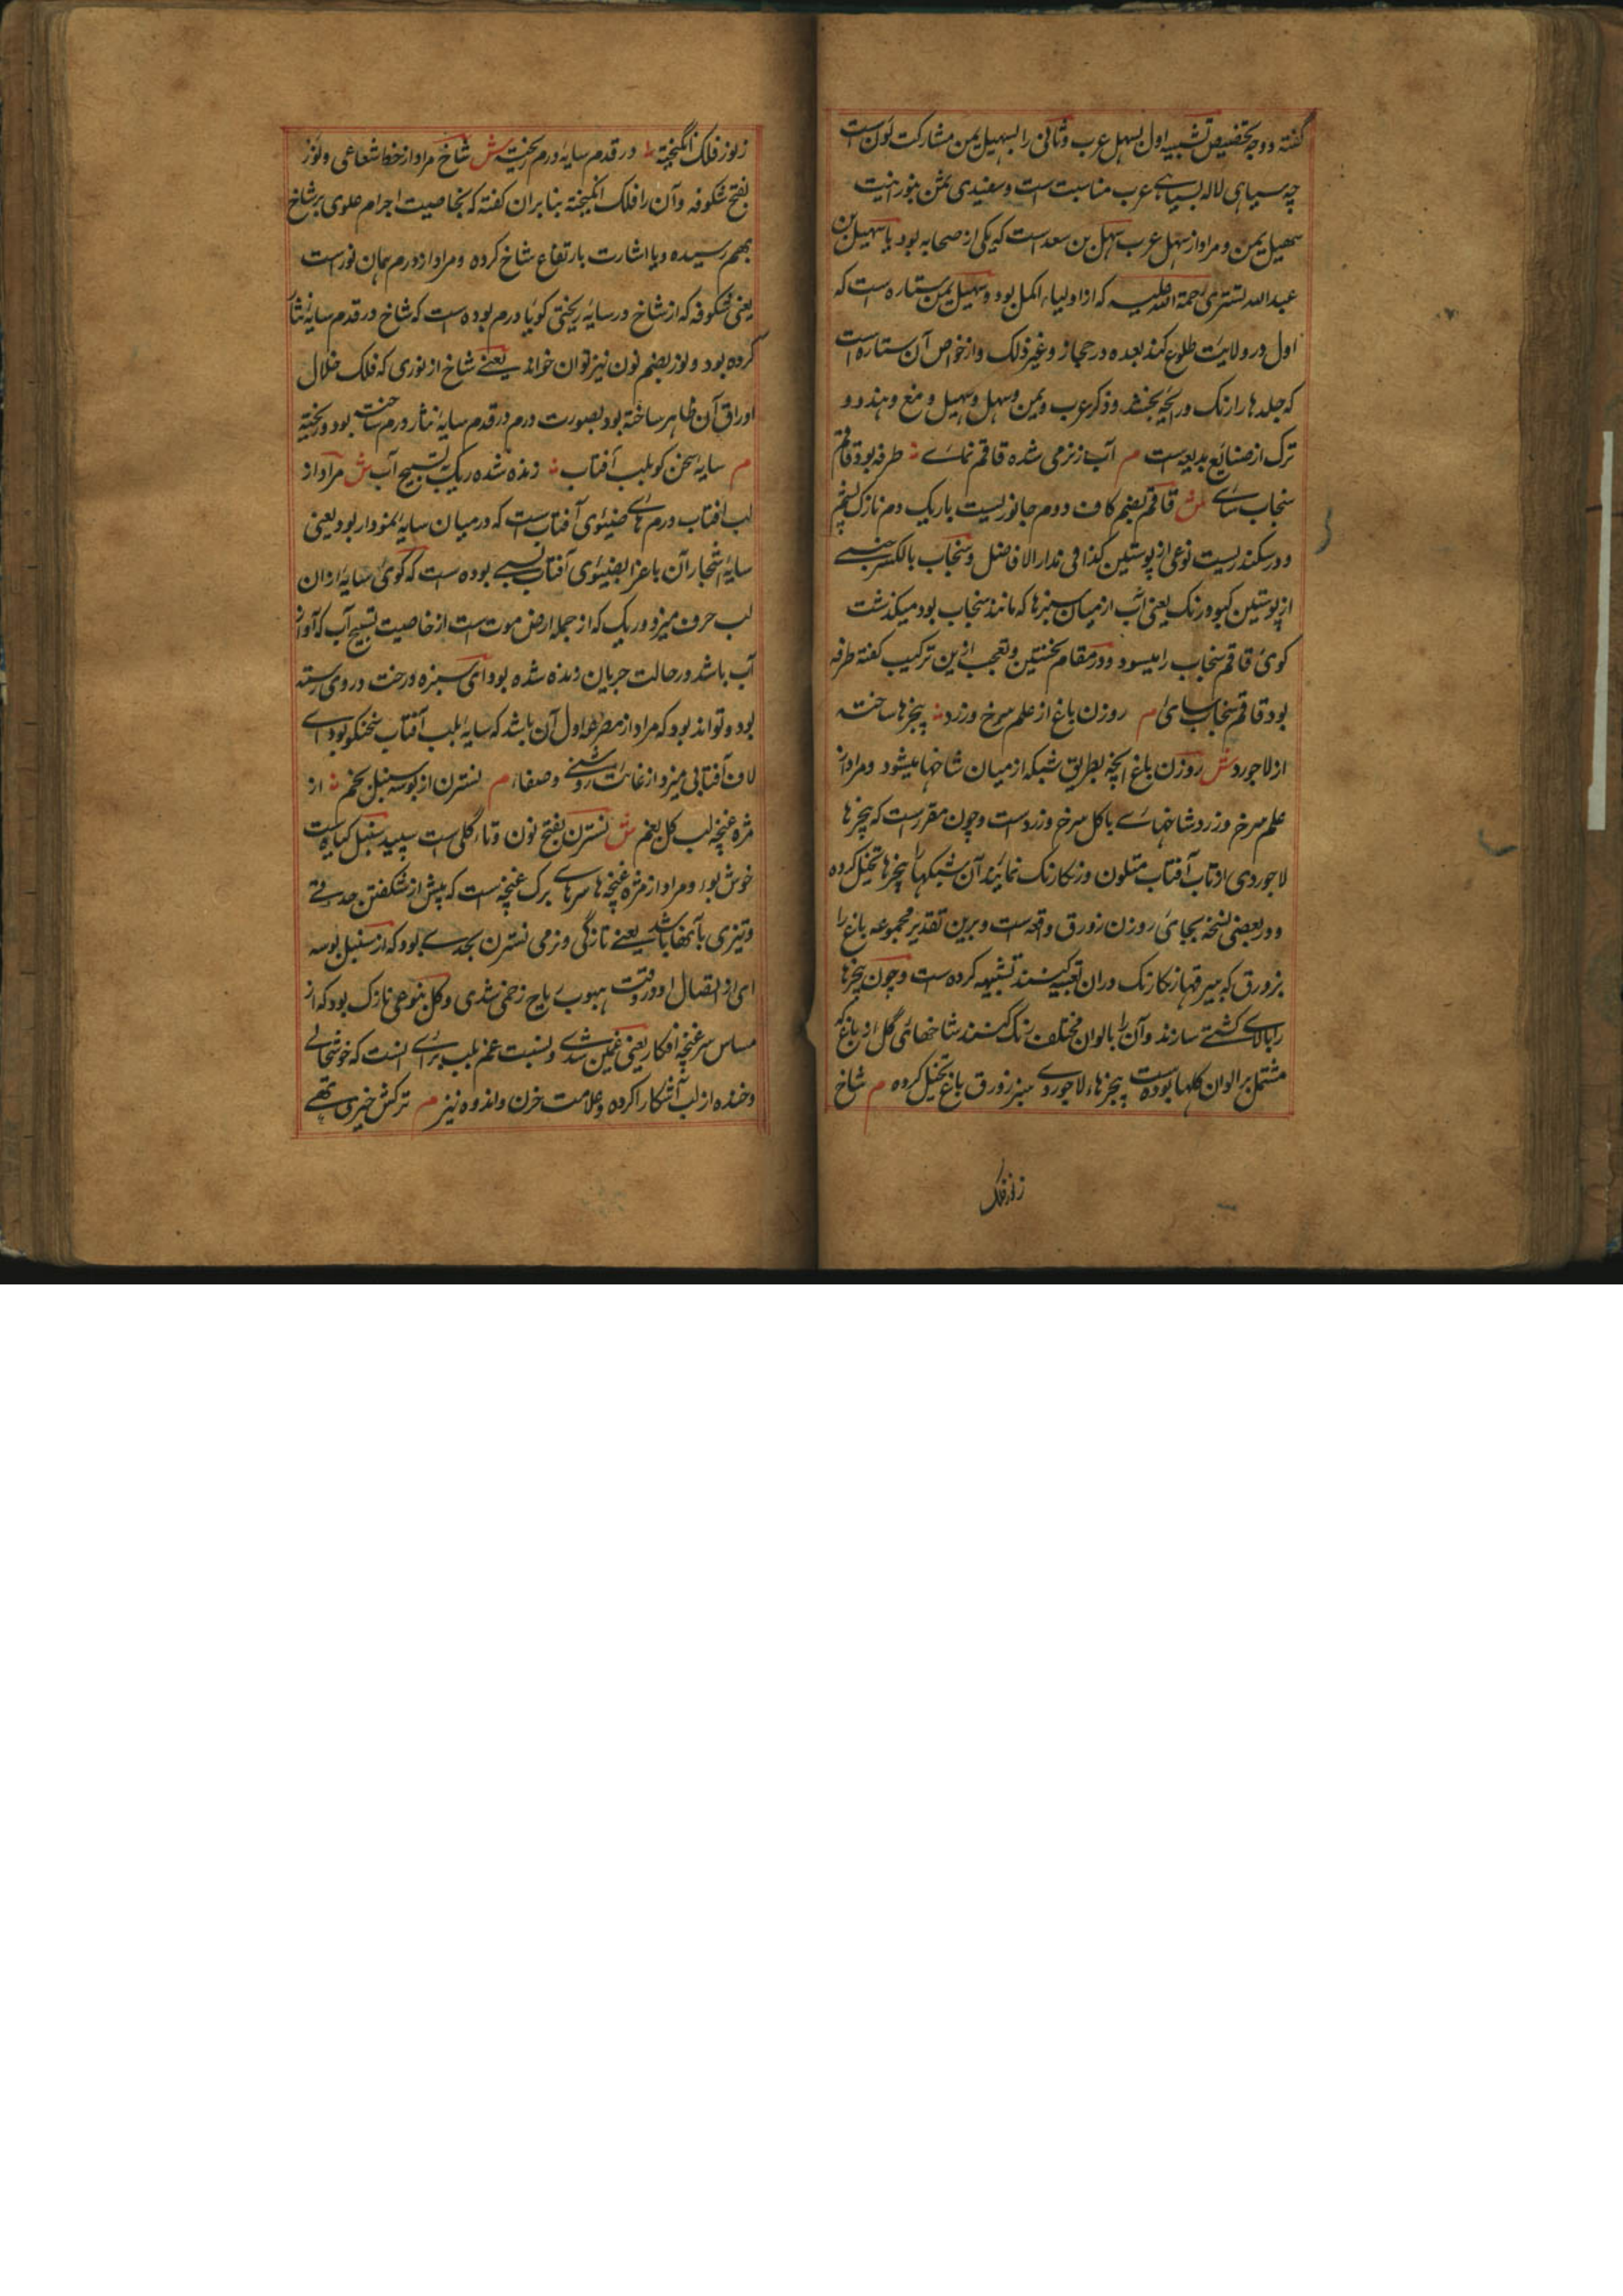 گفته و وجه تخصیص تشبیه اول بسهل عرب و ثانی را بسهیل یمن مشارکت لون است
چه سیاهی لاله بسیاهی عرب مناسبت است و سفیدی
سهیل یمن و مراد از سهل عرب سهل بن سعد است که یکی از صحابه بود یا سهیل بن
عبدالله تستری رحمة الله علیه که از اولیاء اکمل بود و سهیل یمن ستاره است که
اول در ولایت طلوع کند بعده در حجاز و غیر ذلک و از خواص آن ستاره است
که جلدها را رنگ و رائحه بخشد و ذکر عرب و یمن و سهل و سهیل و مغ و هندو و
ترک از صنائع بدیعه است م آب ز نرمی شده قاقم نمای طرفه بود قاقم
سنجاب سای ش قاقم بضم کاف دوم جانوریست باریک دم نازک پشم
و در سکندریست نوعی از پوستین کذا فی مدار الافاضل و سنجاب بالکسر جنسی
از پوستین کبود رنگ یعنی آب از میان سبزها که مانند سنجاب بود میگذشت
گوئ قاقم سنجاب را میسود و در مقام نخستین و تعجب ازین ترکیب گفته طرفه
بود قاقم سنجاب سای م روزن باغ از علم سرخ و زرد پنجرها ساخته
از لاجورد ش روزن باغ آنچه بطریق شبکه از میان شاخها میشود و مراد از
علم سرخ و زرد شاخهای با گل سرخ و زرد است و چون مقرر است که پنجرها
لاجوردی از تاب آفتاب متلون و رنگارنگ نمایند آن شبکهها را پنجرها تخیل کرده
و در بعضی نسخه بجائ روزن زورق واقعه است و برین تقدیر مجموعه باغ را
بزورق که بیرقها رنگارنگ در ان تعبیه کنند تشبیه کرده است و چون پنجرها
را بالای کشتی سازند و آن را بالوان مختلف رنگ کنند شاخهای گل او باغ که
مشتمل بر الوان گلها بوده است پنجرهاء لاجوردی سبز زورق باغ تخیل کرده م شاخ
ز نور فلک
ز نور فلک انگیخته در قدم سایه درم ریخته ش شاخ مراد از خط شعاعی و نور
بفتح شکوفه و آن را فلک انگیخته بنا بران گفته که بخاصیت اجرام علوی بر شاخ
بهم رسیده و یا اشارت بارتفاع شاخ کرده و مراد از درم همان نور است
یعنی شکوفه که از شاخ در سایه ریختی گویا درم بوده است که شاخ در قدم سایه نثار
کرده بود و نور بضم نون نیز توان خواند یعنی شاخ از نوری که فلک خلال
اوراق آن ظاهر ساخته بود بصورت درم در قدم سایه نثار درم ساخته بود و ریخته
م سایه سخن گو بلب آفتاب زنده شده ریگ ز تسبیح آب ش مراد از
لب آفتاب درم های ضیئوی آفتاب است که در میان سایه نمودار بود یعنی
سایه اشجار آن باغ را بضیئوی آفتاب نسبتی بوده است که گوئ سایه از ان
لب حرف میزد و ریگ که از جمله ارض موت است از خاصیت تسبیح آب که آواز
آب باشد در حالت جریان زنده شده بود ای سبزه و درخت در وی رسته
بود و تواند بود که مراد از مصرعه اول آن باشد که سایه بلب آفتاب سخنگو بود ای
لاف آفتابی میزد از غایت روشنی و صفاء م نسترن از بوسه سنبل بخم از
مژه غنچه لب گل بغم ش نسترن بفتح نون و تاء گلی است سپید سنبل گیاهیست
خوش بو و مراد از مژه غنچه ها سرهای برگ غنچه است که پیش از شکفتن
و تیزی بآنها باشد یعنی تازگی و نرمی نسترن بحدی بود که از سنبل بوسه
ای از اتصال او در وقت هبوب ریاح زخمی شدی و گل بنوعی نازک بود که از
مساس سر غنچه افگار یعنی غمین شدی و نسبت غم بلب برای انست که خوشحالی
و خنده از لب آشکارا کرده و علامت حزن و اندوه نیز م ترکش خیری تهی